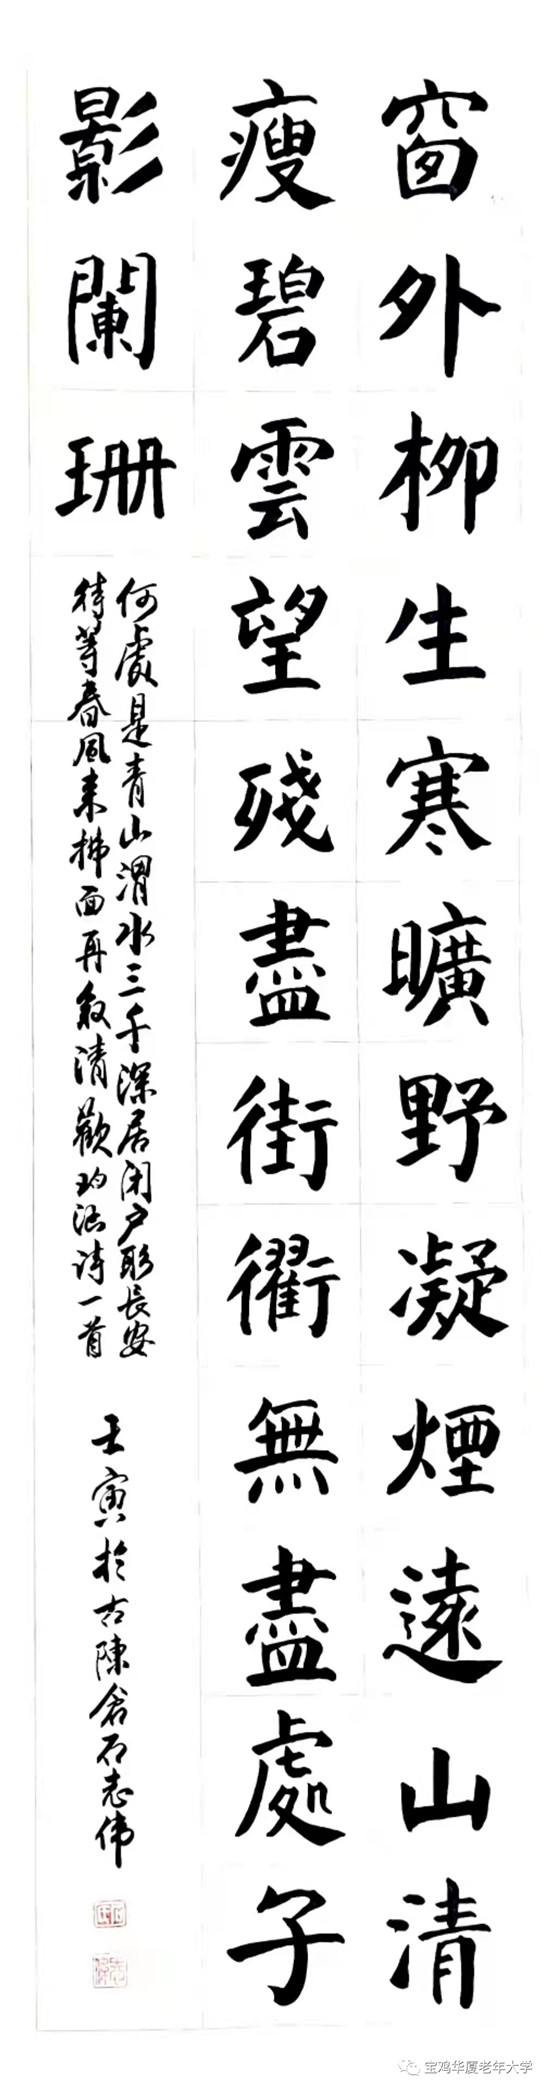 窗外柳生寒曠野凝煙遠山清
瘦碧雲望殘盡街衢無盡處孑
影闌珊
何處是青山渭水三千深居闭户斷長安
待等春風来拂面再叙清歡
诗一首
壬寅於古陳倉石志伟
宝鸡华厦老年大学